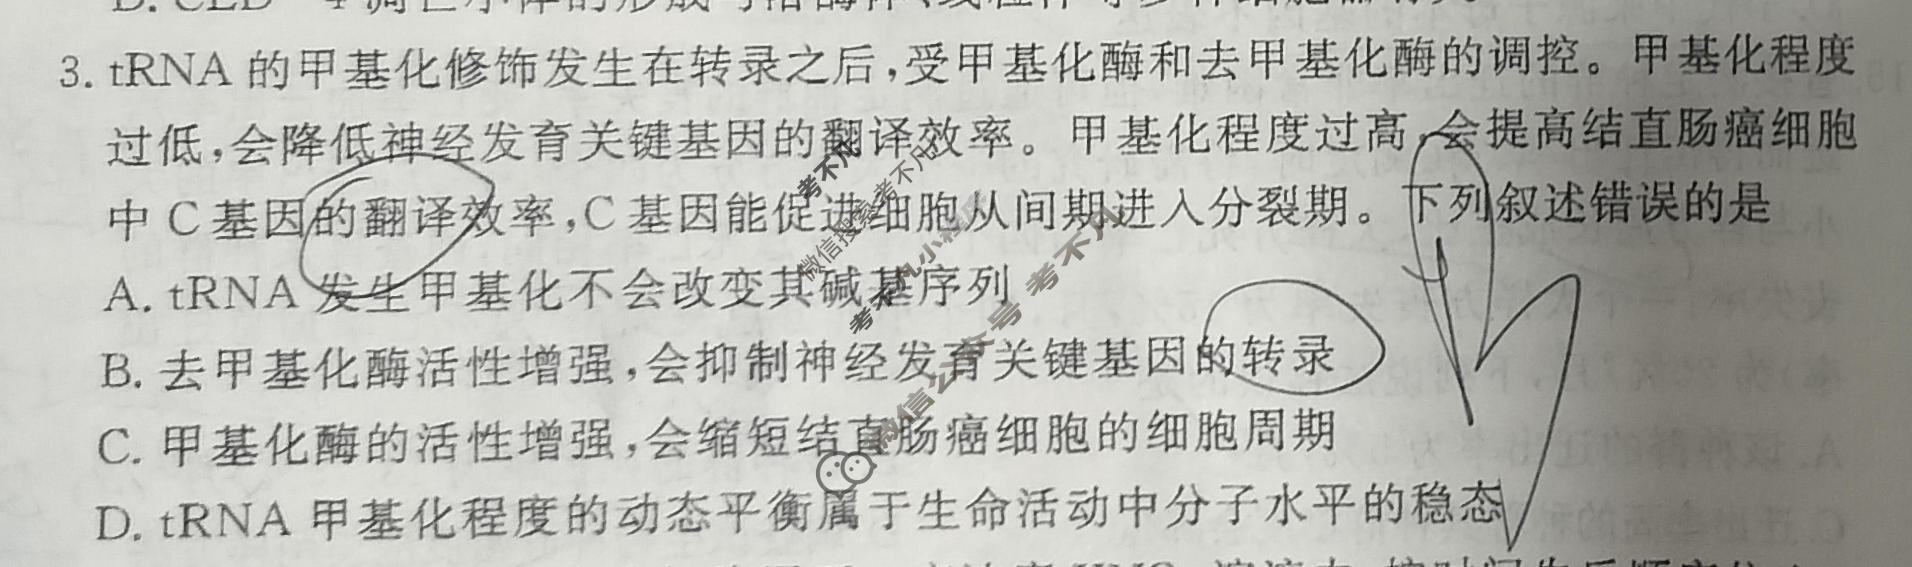 3. tRNA 的甲基化修饰发生在转录之后,受甲基化酶和去甲基化酶的调控。甲基化程度
过低,会降低神经发育关键基因的翻译效率。甲基化程度过高,会提高结直肠癌细胞
中 C 基因的翻译效率,C 基因能促进细胞从间期进入分裂期。下列叙述错误的是
A. tRNA 发生甲基化不会改变其碱基序列
B. 去甲基化酶活性增强,会抑制神经发育关键基因的转录
C. 甲基化酶的活性增强,会缩短结直肠癌细胞的细胞周期
D. tRNA 甲基化程度的动态平衡属于生命活动中分子水平的稳态
考不凡
微信搜索 考不凡
考不凡小程序
微信公众号 考不凡